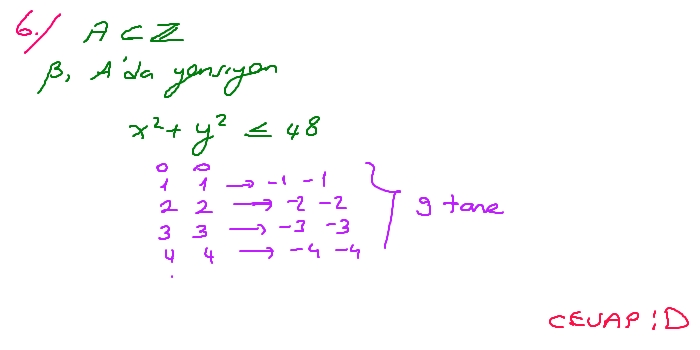 6.) A ⊂ Z
β, A'da yansıyan
x² + y² ≤ 48
0 0
1 1 → -1 -1
2 2 → -2 -2
3 3 → -3 -3
4 4 → -4 -4
9 tane
CEVAP : D